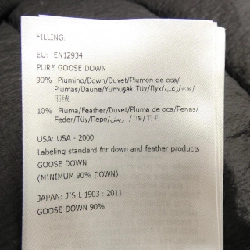 FILLING:
EU: EN12934
PURE GOOSE DOWN
90% Piumino/Down/Duvet/Plumón de oca/
Plumas/Daune/Yumuşak Tüy/
10% Piuma/Feather/Duvet/Pluma de oca/Penas/
Feder/Tüy/Перо/
USA: USA - 2000
Labeling standard for down and feather products
GOOSE DOWN
(MINIMUM 90% DOWN)
JAPAN: JIS L 1903 : 2011
GOOSE DOWN 90%